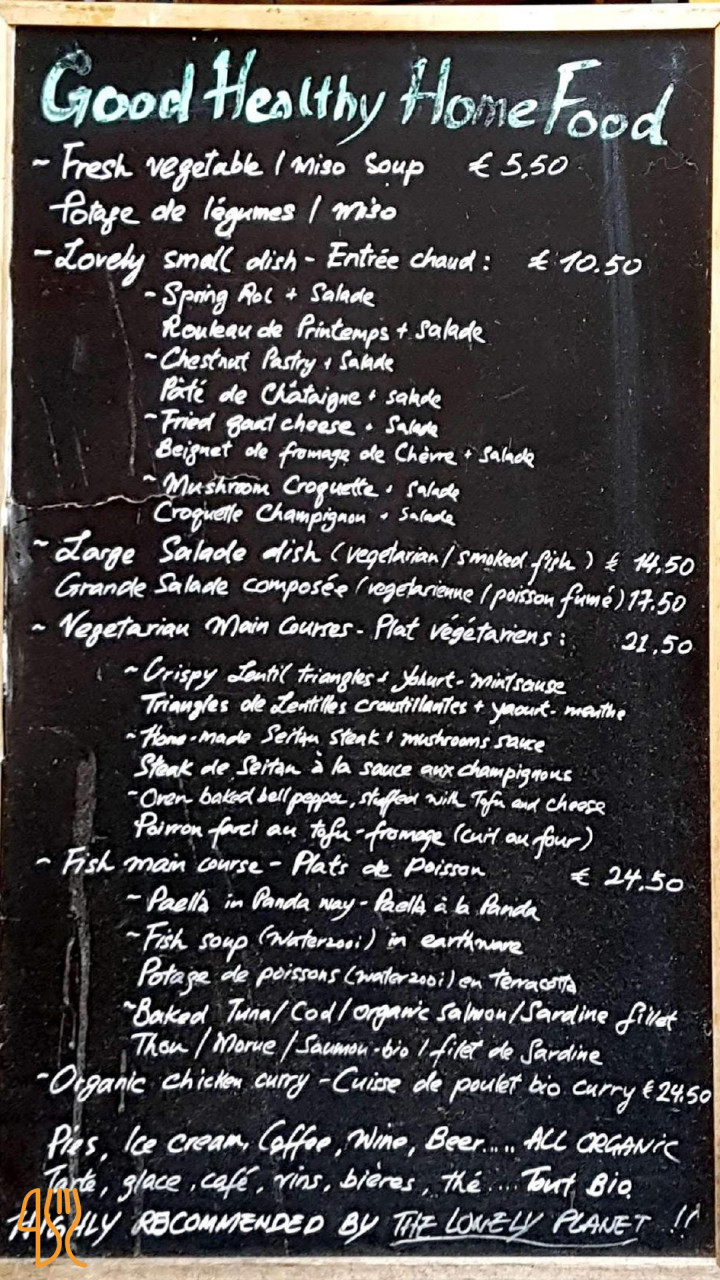 Good Healthy Home Food
~ Fresh vegetable / Miso Soup € 5,50
Potage de légumes / Miso
- Lovely small dish - Entrée chaud : € 10.50
- Spring Rol + Salade
Rouleau de Printemps + Salade
~ Chestnut Pastry + Salade
Pâté de Châtaigne + salade
~ Fried goat cheese + Salade
Beignet de fromage de Chèvre + Salade
~ Mushroom Croquette + Salade
Croquette Champignon + Salade
~ Large Salade dish (vegetarian / smoked fish) € 14,50
Grande Salade composée (vegetarienne / poisson fumé) 17.50
~ Vegetarian Main Courses - Plat végétariens : 21,50
~ Crispy Lentil triangles + Yohurt-mintsause
Triangles de Lentilles croustillantes + yaourt-menthe
~ Home-made Seitan Steak + mushrooms sauce
Steak de Seitan à la sauce aux champignons
~ Oven baked bell pepper, stuffed with Tofu and cheese
Poivron farci au tofu-fromage (cuit au four)
~ Fish main course - Plats de Poisson € 24,50
~ Paella in Panda way - Paella à la Panda
~ Fish soup (Waterzooi) in earthware
Potage de poissons (waterzooi) en terracotta
~ Baked Tuna / Cod / organic Salmon / Sardine fillet
Thon / Morue / Saumon-bio / filet de Sardine
~ Organic chicken curry - Cuisse de poulet bio curry € 24.50
Pies, Ice cream, Coffee, Wine, Beer..... ALL ORGANIC
Tarte, glace, café, vins, bières, thé .... Tout Bio.
HIGHLY RECOMMENDED BY THE LONELY PLANET !!